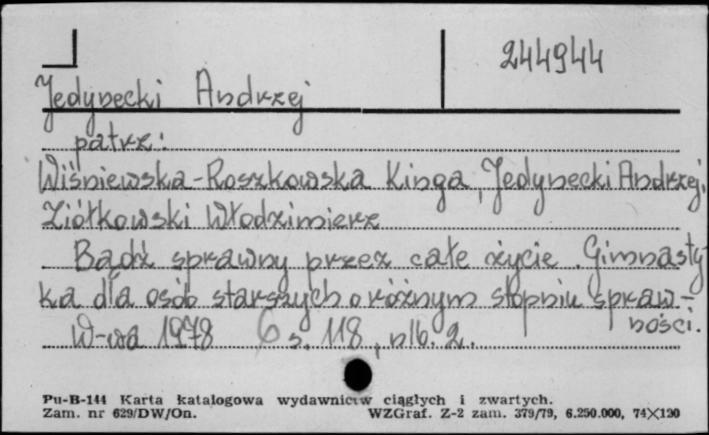 244944
Jedynecki Andrzej
patrz:
Wiśniewska-Roszkowska Kinga, Jedynecki Andrzej,
Ziółkowski Włodzimierz
Bądź sprawny przez całe życie. Gimnasty-
ka dla osób starszych o różnym stopniu spraw-
ności.
W-wa 1978 s. 118, nlb. 2.
Pu-B-144 Karta katalogowa wydawnictw ciągłych i zwartych.
Zam. nr 629/DW/On. WZGraf. Z-2 zam. 379/79, 6.250.000, 74×120